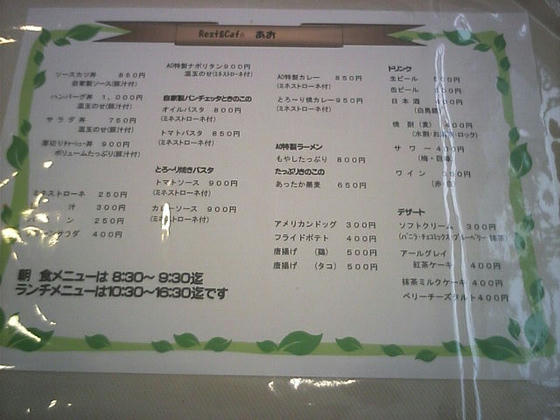 Rest&Cafe あお
ソースカツ丼 850円
自家製ソース(豚汁付)
ハンバーグ丼 1,000円
温玉のせ(豚汁付)
サラダ丼 750円
温玉のせ(豚汁付)
厚切りチャーシュー丼 900円
ボリュームたっぷり(豚汁付)
ミネストローネ 250円
汁 300円
250円
サラダ 400円
AO特製ナポリタン900円
温玉のせ(ミネストローネ付)
自家製パンチェッタときのこの
オイルパスタ 800円
(ミネストローネ付)
トマトパスタ 850円
(ミネストローネ付)
とろ〜り焼きパスタ
トマトソース 900円
(ミネストローネ付)
カレーソース 900円
(ミネストローネ付)
AO特製カレー 850円
(ミネストローネ付)
とろ〜り焼カレー950円
(ミネストローネ付)
AO特製ラーメン
もやしたっぷり 800円
たっぷりきのこの
あったか蕎麦 650円
アメリカンドッグ 300円
フライドポテト 400円
唐揚げ (鶏) 500円
唐揚げ (タコ) 500円
ドリンク
生ビール 500円
缶ビール
日本酒
焼酎(麦) 400円
(水割・お湯割・ロック)
サワー 400円
ワイン
デザート
ソフトクリーム 300円
(バニラ・チョコミックス・ブルーベリー・抹茶)
アールグレイ
紅茶ケーキ 400円
抹茶ミルクケーキ 400円
ベリーチーズタルト400円
朝 食メニューは 8:30〜 9:30迄
ランチメニューは10:30〜16:30迄です